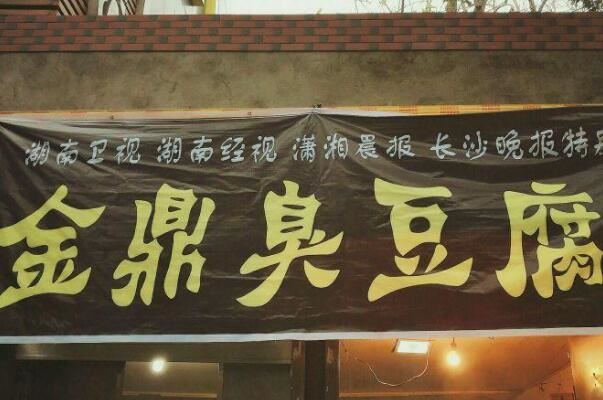 湖南卫视 湖南经视 潇湘晨报 长沙晚报特
金鼎臭豆腐